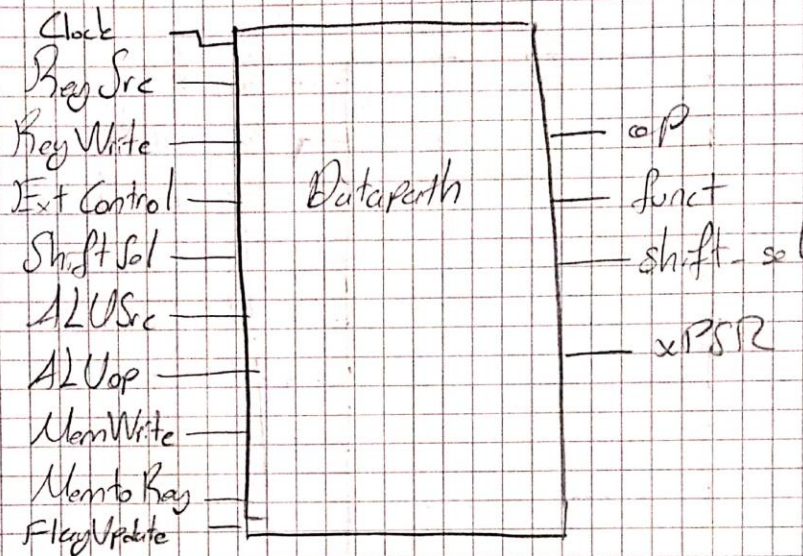 Clock
RegSrc
RegWrite
Ext Control
ShiftSel
ALUSrc
ALUop
MemWrite
MemtoReg
FlagUpdate
Datapath
op
funct
shift_sel
xPSR